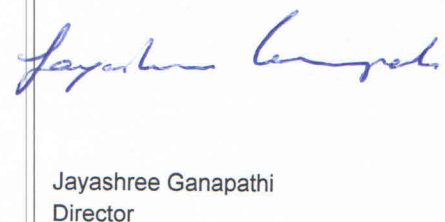 Jayashree Ganapathi
Jayashree Ganapathi
Director